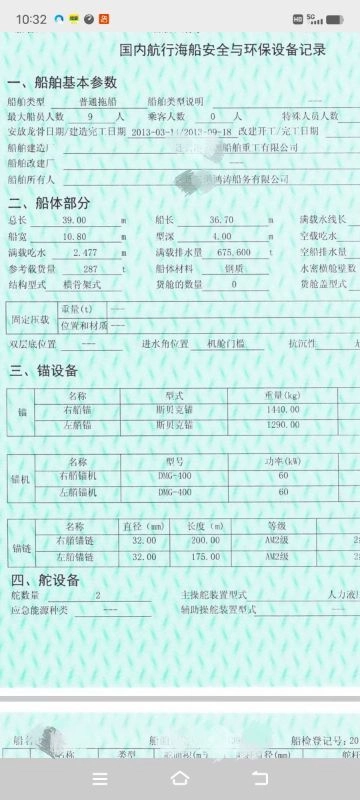 10:32
HD 5G
国内航行海船安全与环保设备记录
一、船舶基本参数
船舶类型 普通拖船 船舶类型说明 ---
最大船员人数 9 人 乘客人数 0 人 特殊人员人数
安放龙骨日期/建造完工日期 2013-03-14/2013-09-18 改建开工/完工日期
船舶建造厂 船舶重工有限公司
船舶改建厂 ---
船舶所有人 鸿涛船务有限公司
二、船体部分
总长 39.00 m 船长 36.70 m 满载水线长
船宽 10.80 m 型深 4.00 m 空载吃水
满载吃水 2.477 m 满载排水量 675.600 t 空船排水量
参考载货量 287 t 船体材料 钢质 水密横舱壁数
结构型式 横骨架式 货舱的数量 0 货舱盖型式
固定压载 重量(t) ---
位置和材质 ---
双层底位置 --- 进水角位置 机舱门槛 抗沉性
三、锚设备
名称 型式 重量(kg)
锚 右船锚 斯贝克锚 1440.00
左船锚 斯贝克锚 1290.00
名称 型号 功率(kW)
锚机 右船锚机 DMG-400 60
左船锚机 DMG-400 60
名称 直径(mm) 长度(m) 等级
锚链 右船锚链 32.00 200.00 AM2级
左船锚链 32.00 175.00 AM2级
四、舵设备
舵数量 2 主操舵装置型式 人力液
应急能源种类 --- 辅助操舵装置型式 ---
船名 船舶 船检登记号: 20
名称 类型